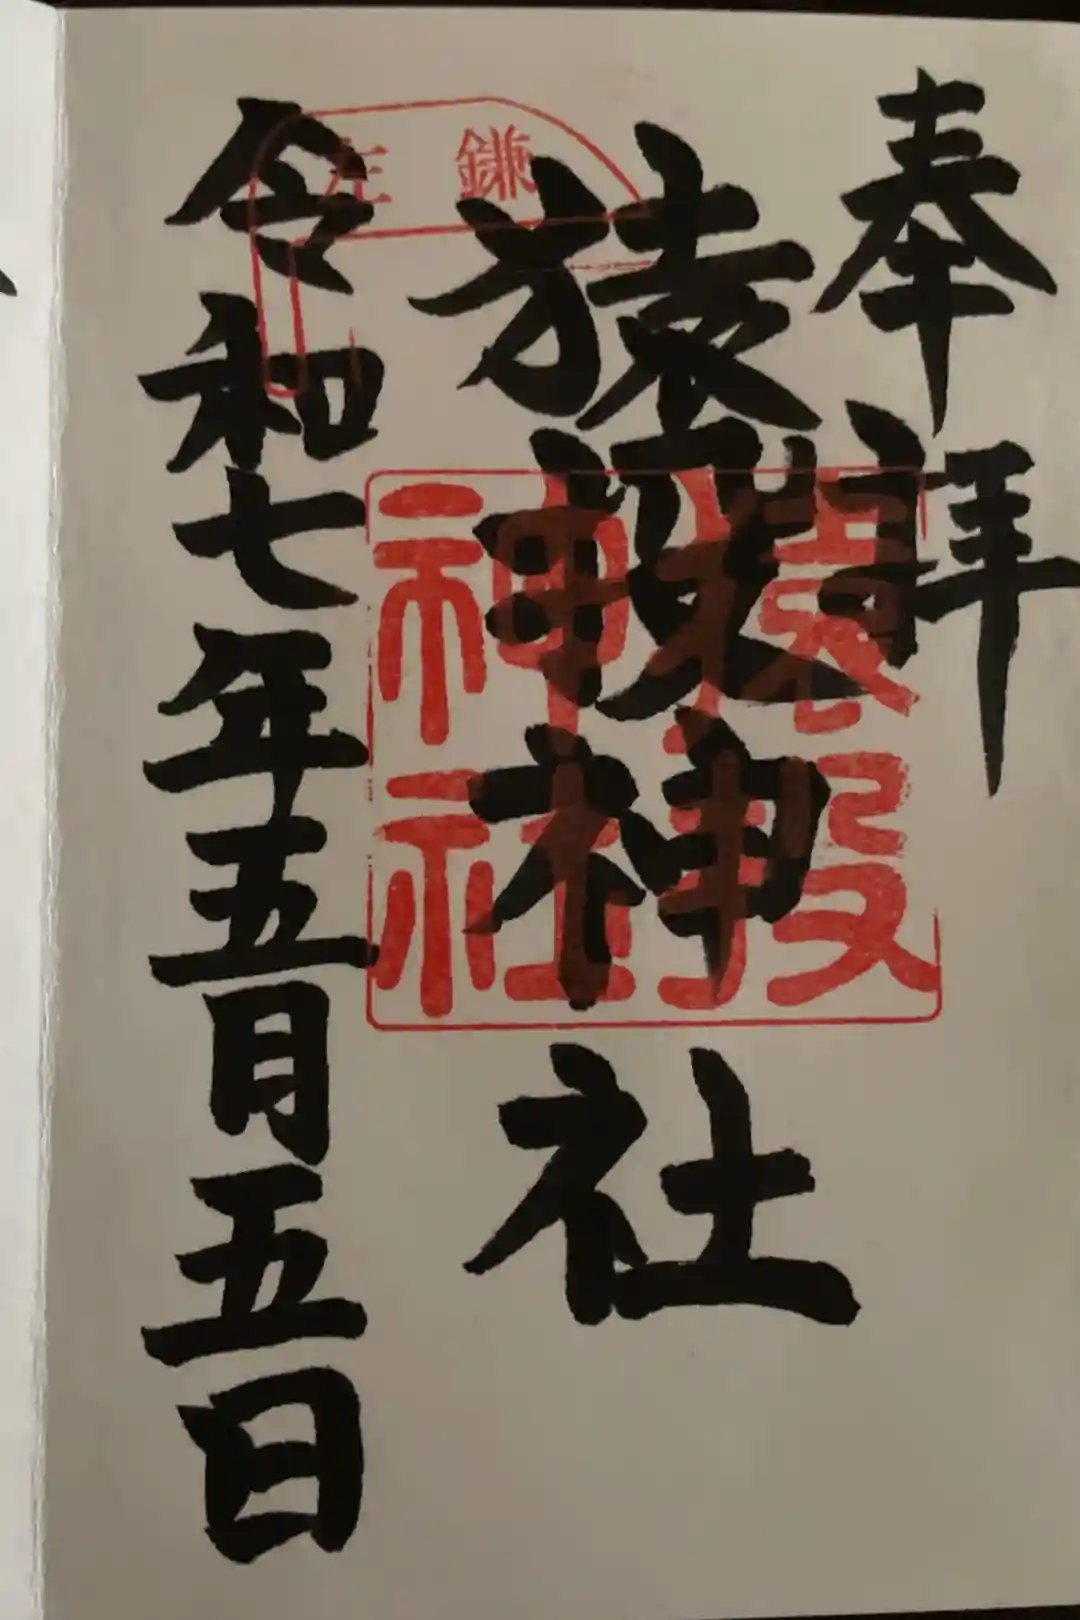 奉拝
猿投神社
令和七年五月五日
左鎌
猿投
神社